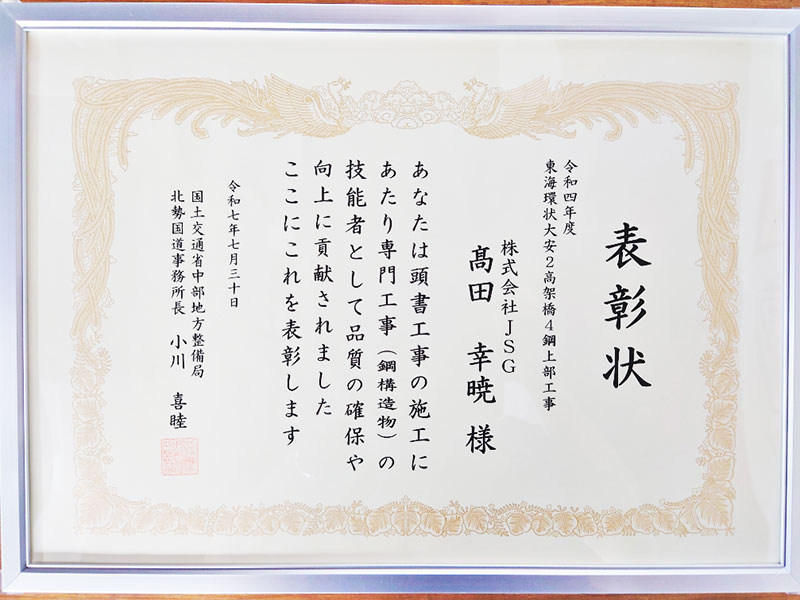 表彰状
令和四年度
東海環状大安2高架橋4鋼上部工事
株式会社JSG
髙田 幸暁 様
あなたは頭書工事の施工に
あたり専門工事(鋼構造物)の
技能者として品質の確保や
向上に貢献されました
ここにこれを表彰します
令和七年七月三十日
国土交通省中部地方整備局
北勢国道事務所長 小川 喜睦